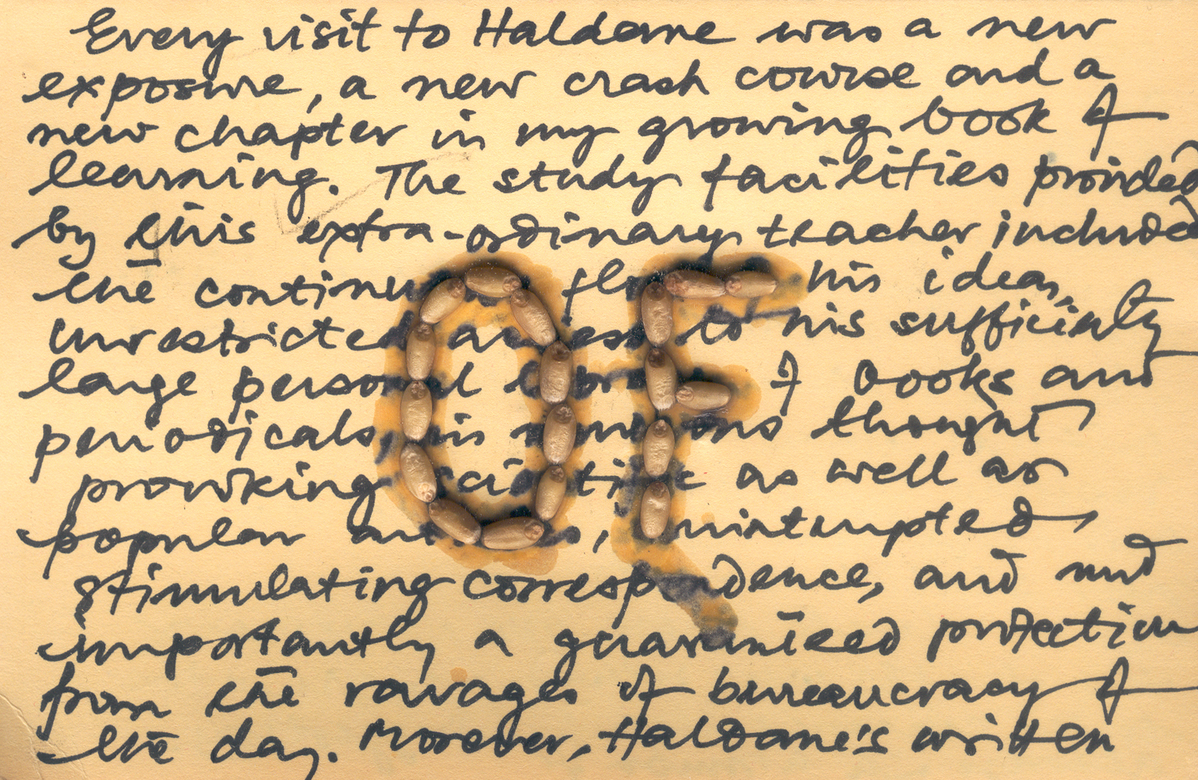 Every visit to Haldane was a new
exposure, a new crash course and a
new chapter in my growing book of
learning. The study facilities provided
by this extra-ordinary teacher included
the his ideas,
unrestricted to his sufficiently
large personal of books and
periodicals, his thought
provoking as well as
popular
stimulating correspondence, and most
importantly a guaranteed protection
from the ravages of bureaucracy of
the day. Moreover, Haldane's written
OF